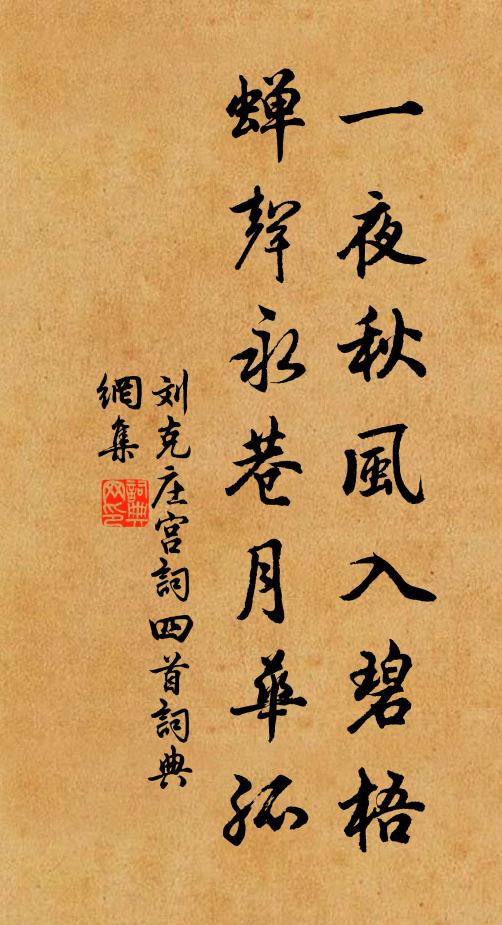 一夜秋風入碧梧
蝉聲永巷月華孤
刘克庄宫詞四首詞典
網集
詞典网印